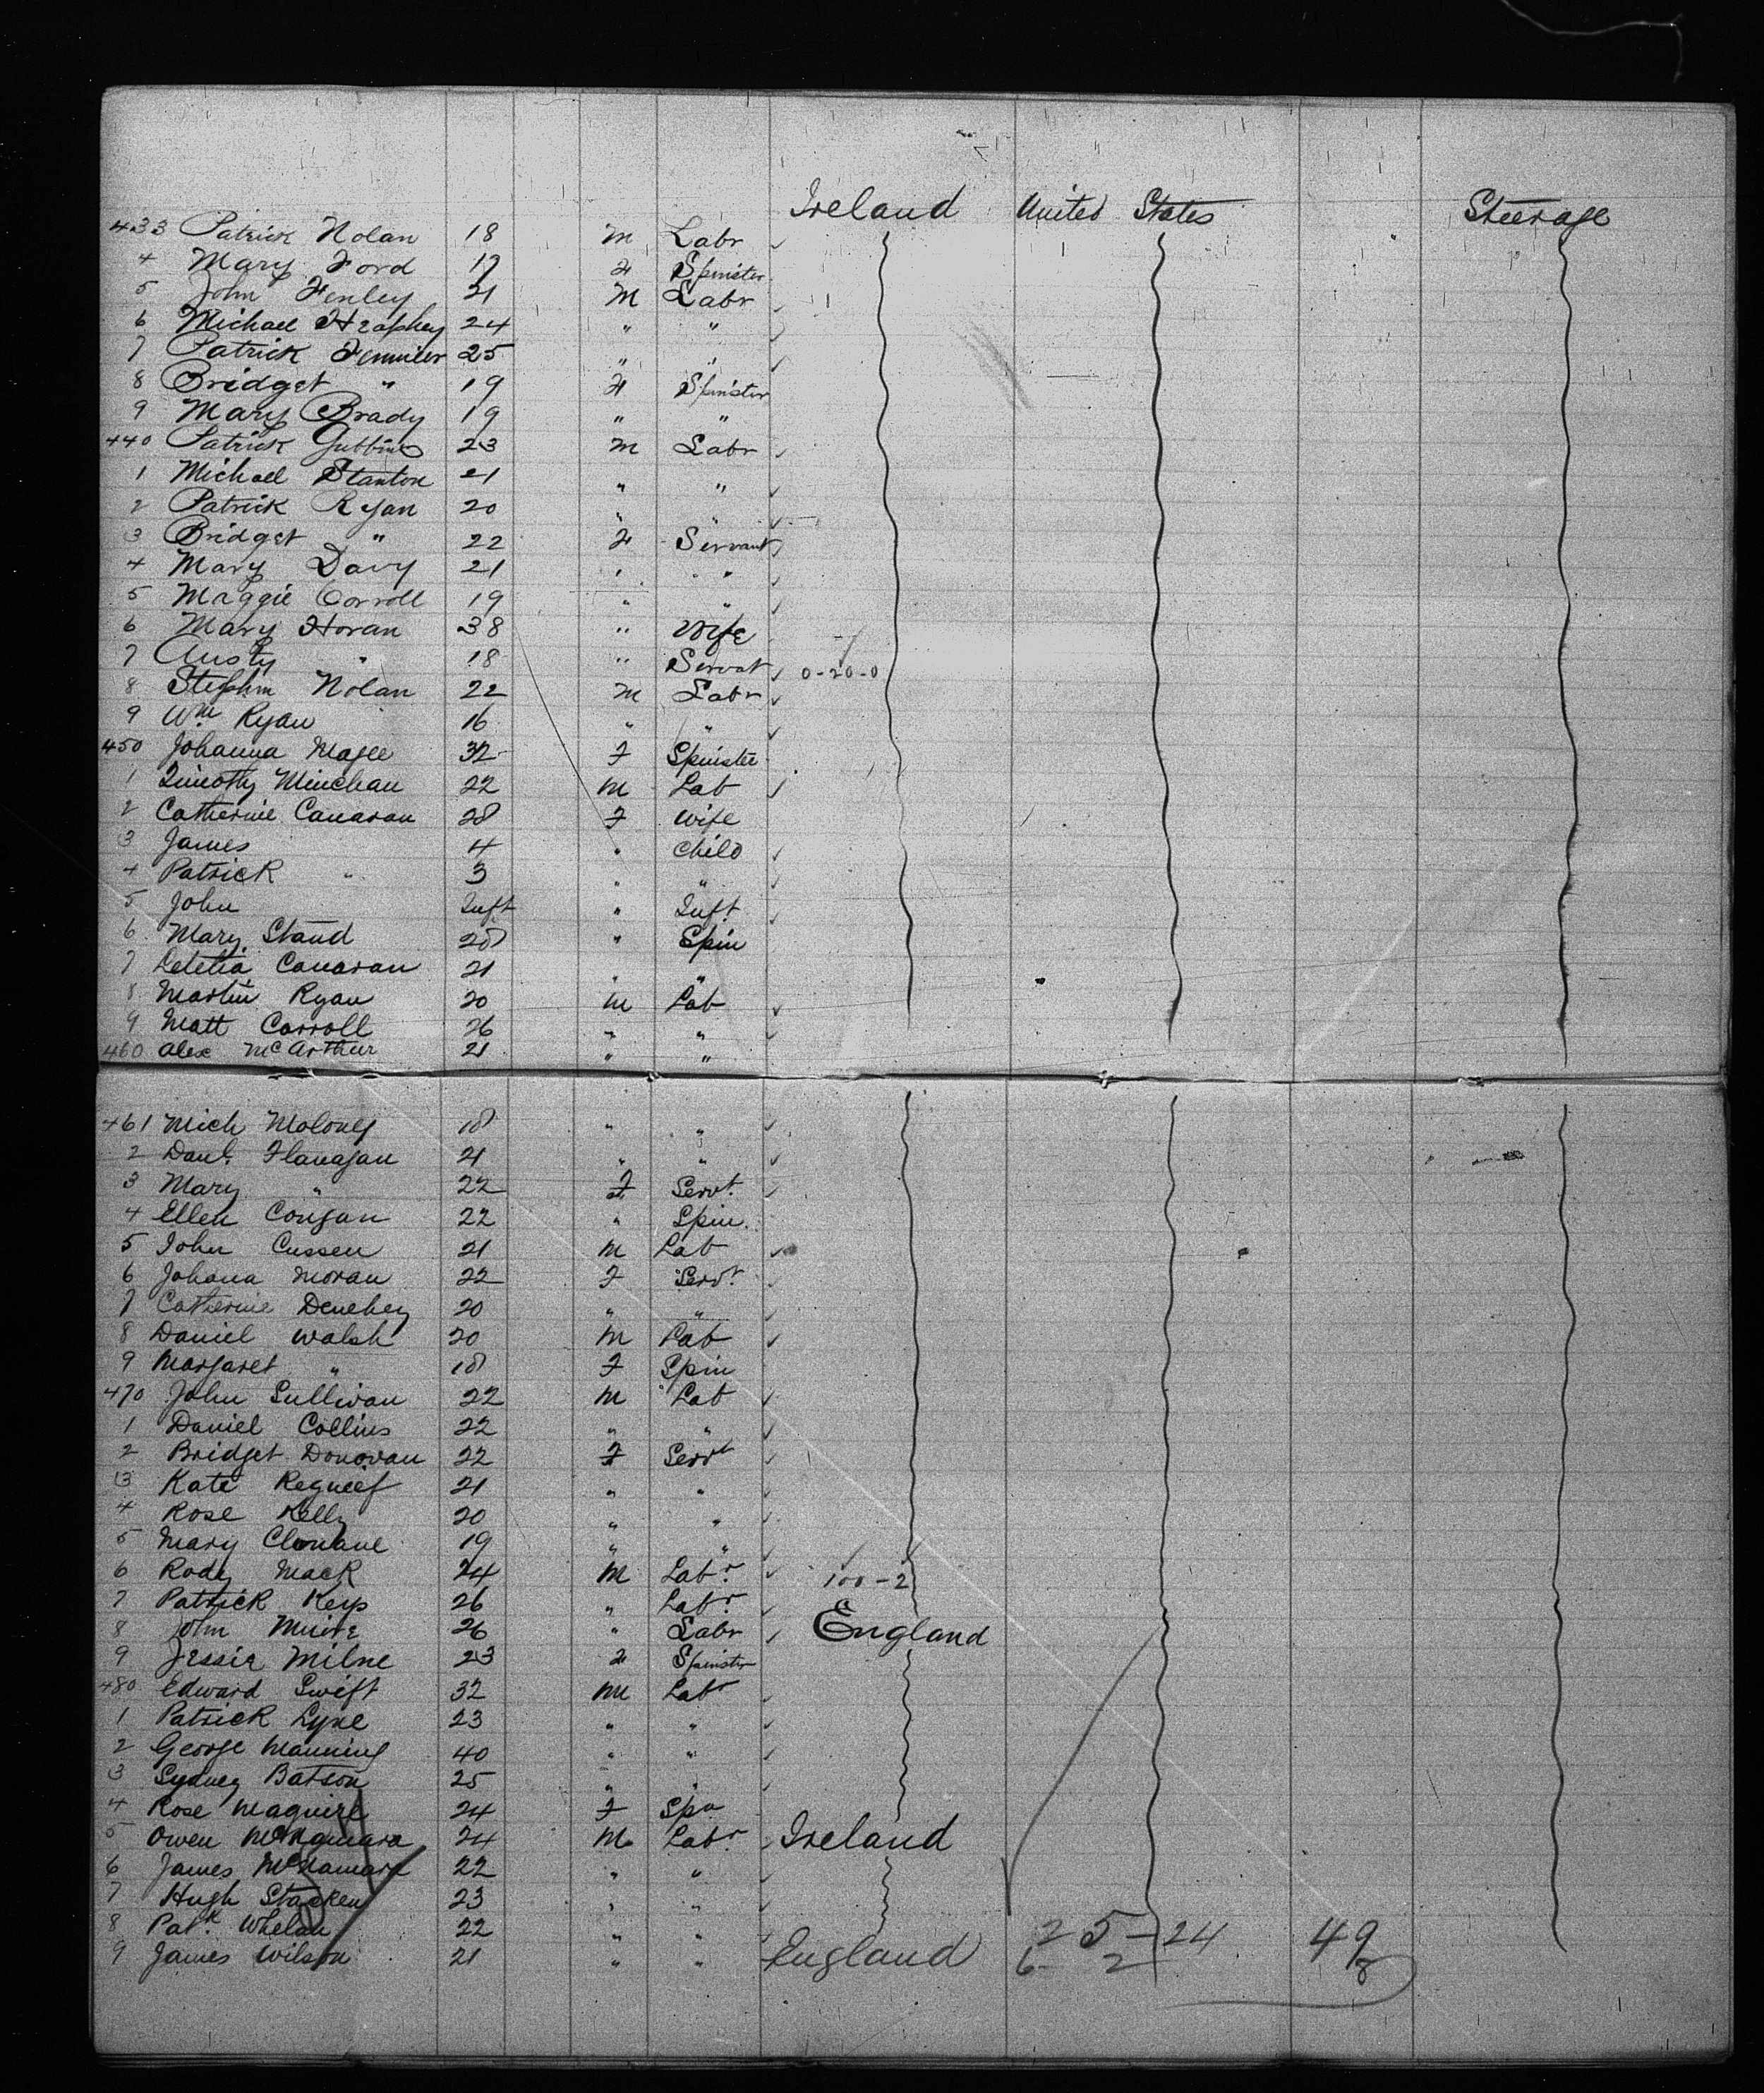 Ireland United States Steerage
433 Patrick Nolan 18 M Labr
4 Mary Ford 17 F Spinster
5 John Fenley 21 M Labr
6 Michael Heaphey 24 " "
7 Patrick 25 " "
8 Bridget " 19 F Spinster
9 Mary Brady 19 " "
440 Patrick Gubbins 23 M Labr
1 Michael Stanton 21 " "
2 Patrick Ryan 20 " "
3 Bridget " 22 F Servant
4 Mary Davy 21 " "
5 Maggie Corroll 19 " "
6 Mary Horan 38 " Wife
7 Austy " 18 " Servat 0-20-0
8 Stephin Nolan 22 M Labr
9 Wm Ryan 16 " "
450 Johanna Magee 32 F Spinster
1 Timothy Minehan 22 M Lab
2 Catherine Canavan 28 F Wife
3 James 4 " Child
4 Patrick " 3 " "
5 John Inft " Inft
6 Mary Stand 28 " Spin
7 Letetia Canavan 21 " "
8 Martin Ryan 20 M Lab
9 Matt Carroll 26 " "
460 Alex McArthur 21 " "
461 Mich Moloney 18 " "
2 Danl. Flanagan 21 " "
3 Mary " 22 F Servt.
4 Ellen Congan 22 " Spin.
5 John Cussen 21 M Lab
6 Johana Moran 22 F Servt
7 Catherine Denehey 20 " "
8 Daniel Walsh 20 M Lab
9 Margaret " 18 F Spin
470 John Sullivan 22 M Lab
1 Daniel Collins 22 " "
2 Bridget Donovan 22 F Servt
3 Kate 21 " "
4 Rose Kelly 20 " "
5 Mary Clonane 19 " "
6 Rody Mack 24 M Labr. 100-2
7 Patrick Keys 26 " Labr.
8 John 26 " Labr England
9 Jessie Milne 23 F Spinster
480 Edward Swift 32 M Labr
1 Patrick Lyne 23 " "
2 George Manning 40 " "
3 Sydney Batson 25 " "
4 Rose Maguire 24 F Spn
5 Owen McNamara 24 M Labr. Ireland
6 James McNamara 22 " "
7 Hugh Stacken 23 " "
8 Patk. Whelan 22 " " 25-24 49
9 James Wilson 21 " " England 6 2 8